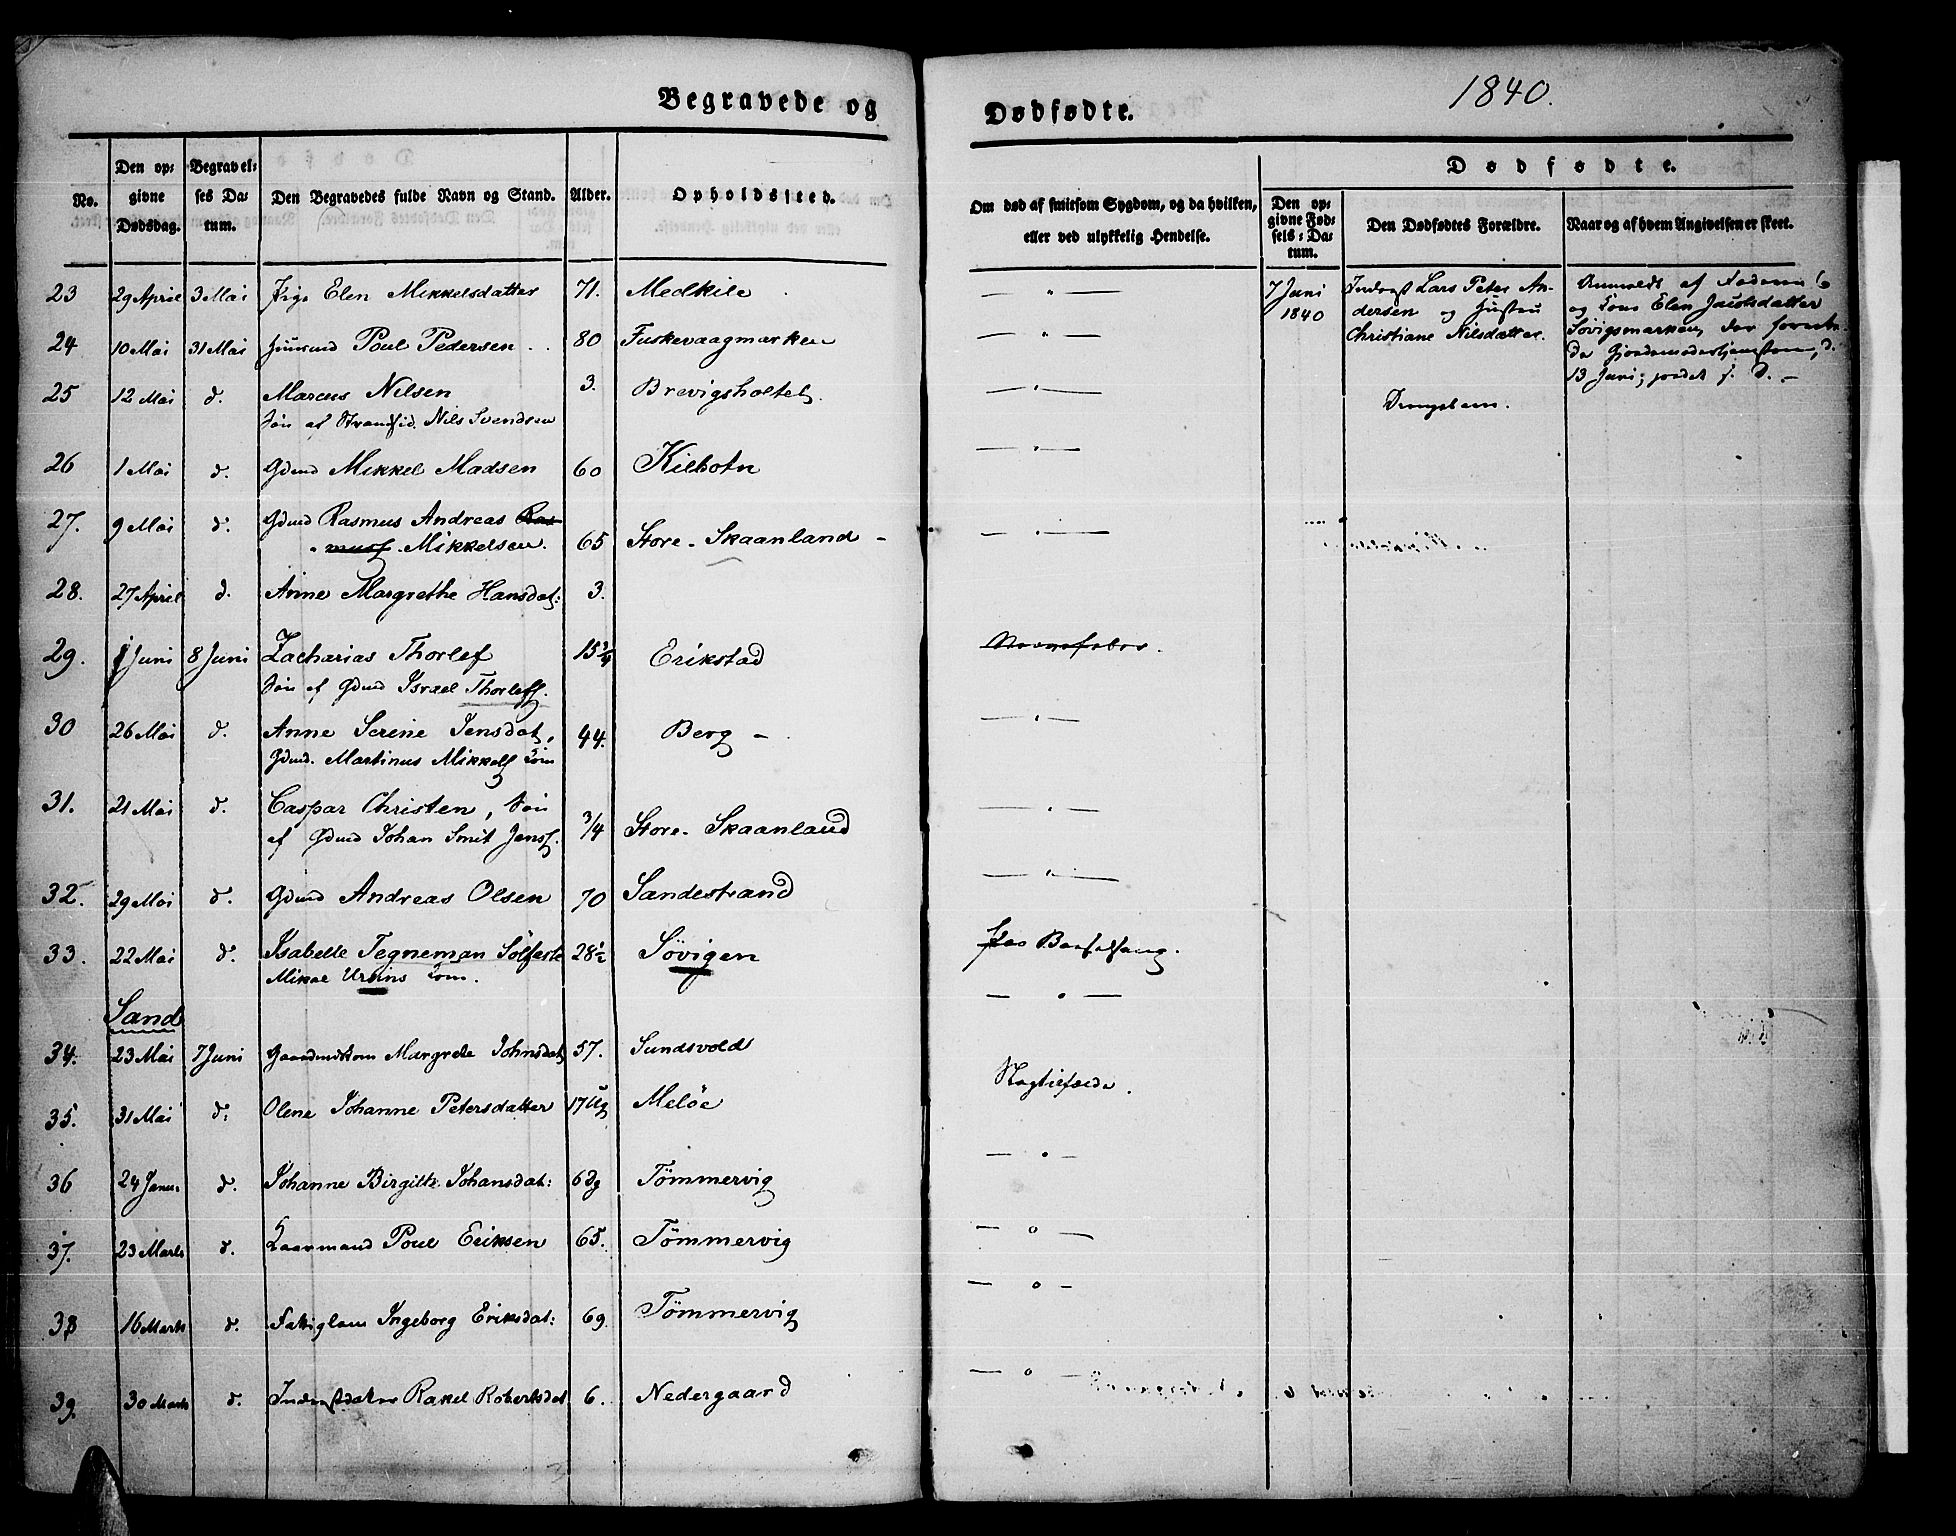 Begravede og
Dødfødte.
1840.
No.
Den op-
givne
Dødsdag.
Begravel-
ses Da-
tum.
Den Begravedes fulde Navn og Stand.
Alder.
Opholdssted.
Om død af smitsom Sygdom, og da hvilken,
eller ved ulykkelig Hendelse.
Dødfødte.
Den op-
givne Fød-
sels-Da-
tum.
Den Dødfødtes Forældre.
Naar og af hvem Angivelsen er skeet.
23 29 April 3 Mai Pige Elen Mikkelsdatter 71. Medkile
24 10 Mai 31 Mai Huusmd Poul Pedersen 80 Fuskevaagmarken
25 12 Mai d. Marcus Nilsen 3. Brevigsholtet
Søn af Strandsid. Nils Svendsen
26 1 Mai d. Gdmd Mikkel Madsen 60 Kilbotn
27. 9 Mai d. Gdmd Rasmus Andreas Ras-
mus. Mikkelsen. 65 Store-Skaanland
28. 27 April d. Anne Margrethe Hansdat: 3.
29. Juni 8 Juni Zacharias Thorlef 15 3/4 Erikstad
Søn af Gdmd Israel Thorlefs.
30 26 Mai d. Anne Serine Jensdat, 44. Berg
Gdmd. Martinus Mikkels. Kone
31. 21 Mai d. Caspar Christen, Søn
af Gdmd Johan Smit Jens. 3/4 Store-Skaanland
32. 29 Mai d. Gdmd Andreas Olsen 70 Sandestrand
33. 22 Mai d. Isabelle Tegneman Sølfeste 28 1/2 Søvigen Paa Barselseng.
Mikal Ursins Kone.
Sand
34. 23 Mai 7 Juni Gaardmdskone Margrete Johnsdat 57. Sundsvold
35. 31 Mai d: Olene Johanne Petersdatter 17 Ug Meløe
36 24 Janu: d. Johanne Birgitte Johansdat: 6 Dg Tömmervig
37. 23 Marts d. Poul Eriksen 65. Tömmervig
38 16 Marts d. Ingeborg Eriksdat: 69. Tömmervig
39. 30 Marts d. Rakel Robertsdat 6. Nedergaard
7 Juni
1840
Inderst Lars Peter An-
dersen og Hustru
Christiane Nilsdatter.
Drengebarn.
Anmeldt af Faderen
og Kone Elen Jacobsdatter
Søvigsmarken, der forret-
de Gjordemodertjenesten, d.
13 Juni; jordet s. D.